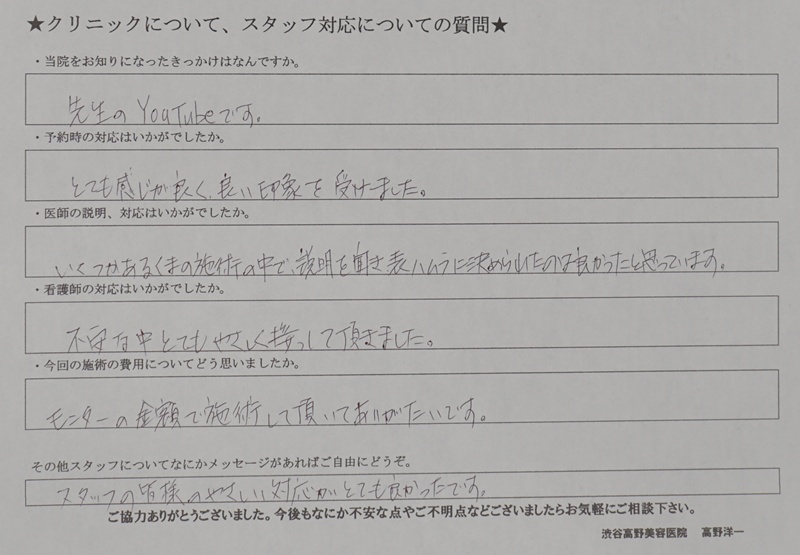 ★クリニックについて、スタッフ対応についての質問★
・当院をお知りになったきっかけはなんですか。
先生のYouTubeです。
・予約時の対応はいかがでしたか。
とても感じが良く、良い印象を受けました。
・医師の説明、対応はいかがでしたか。
いくつかあるくまの施術の中で、説明を聞き表ハムラに決められたのは良かったと思っています。
・看護師の対応はいかがでしたか。
不安な中とてもやさしく接っして頂きました。
・今回の施術の費用についてどう思いましたか。
モニターの金額で施術して頂いてありがたいです。
その他スタッフについてなにかメッセージがあればご自由にどうぞ。
スタッフの皆様のやさしい対応がとても良かったです。
ご協力ありがとうございました。今後もなにか不安な点やご不明点などございましたらお気軽にご相談下さい。
渋谷高野美容医院 高野洋一